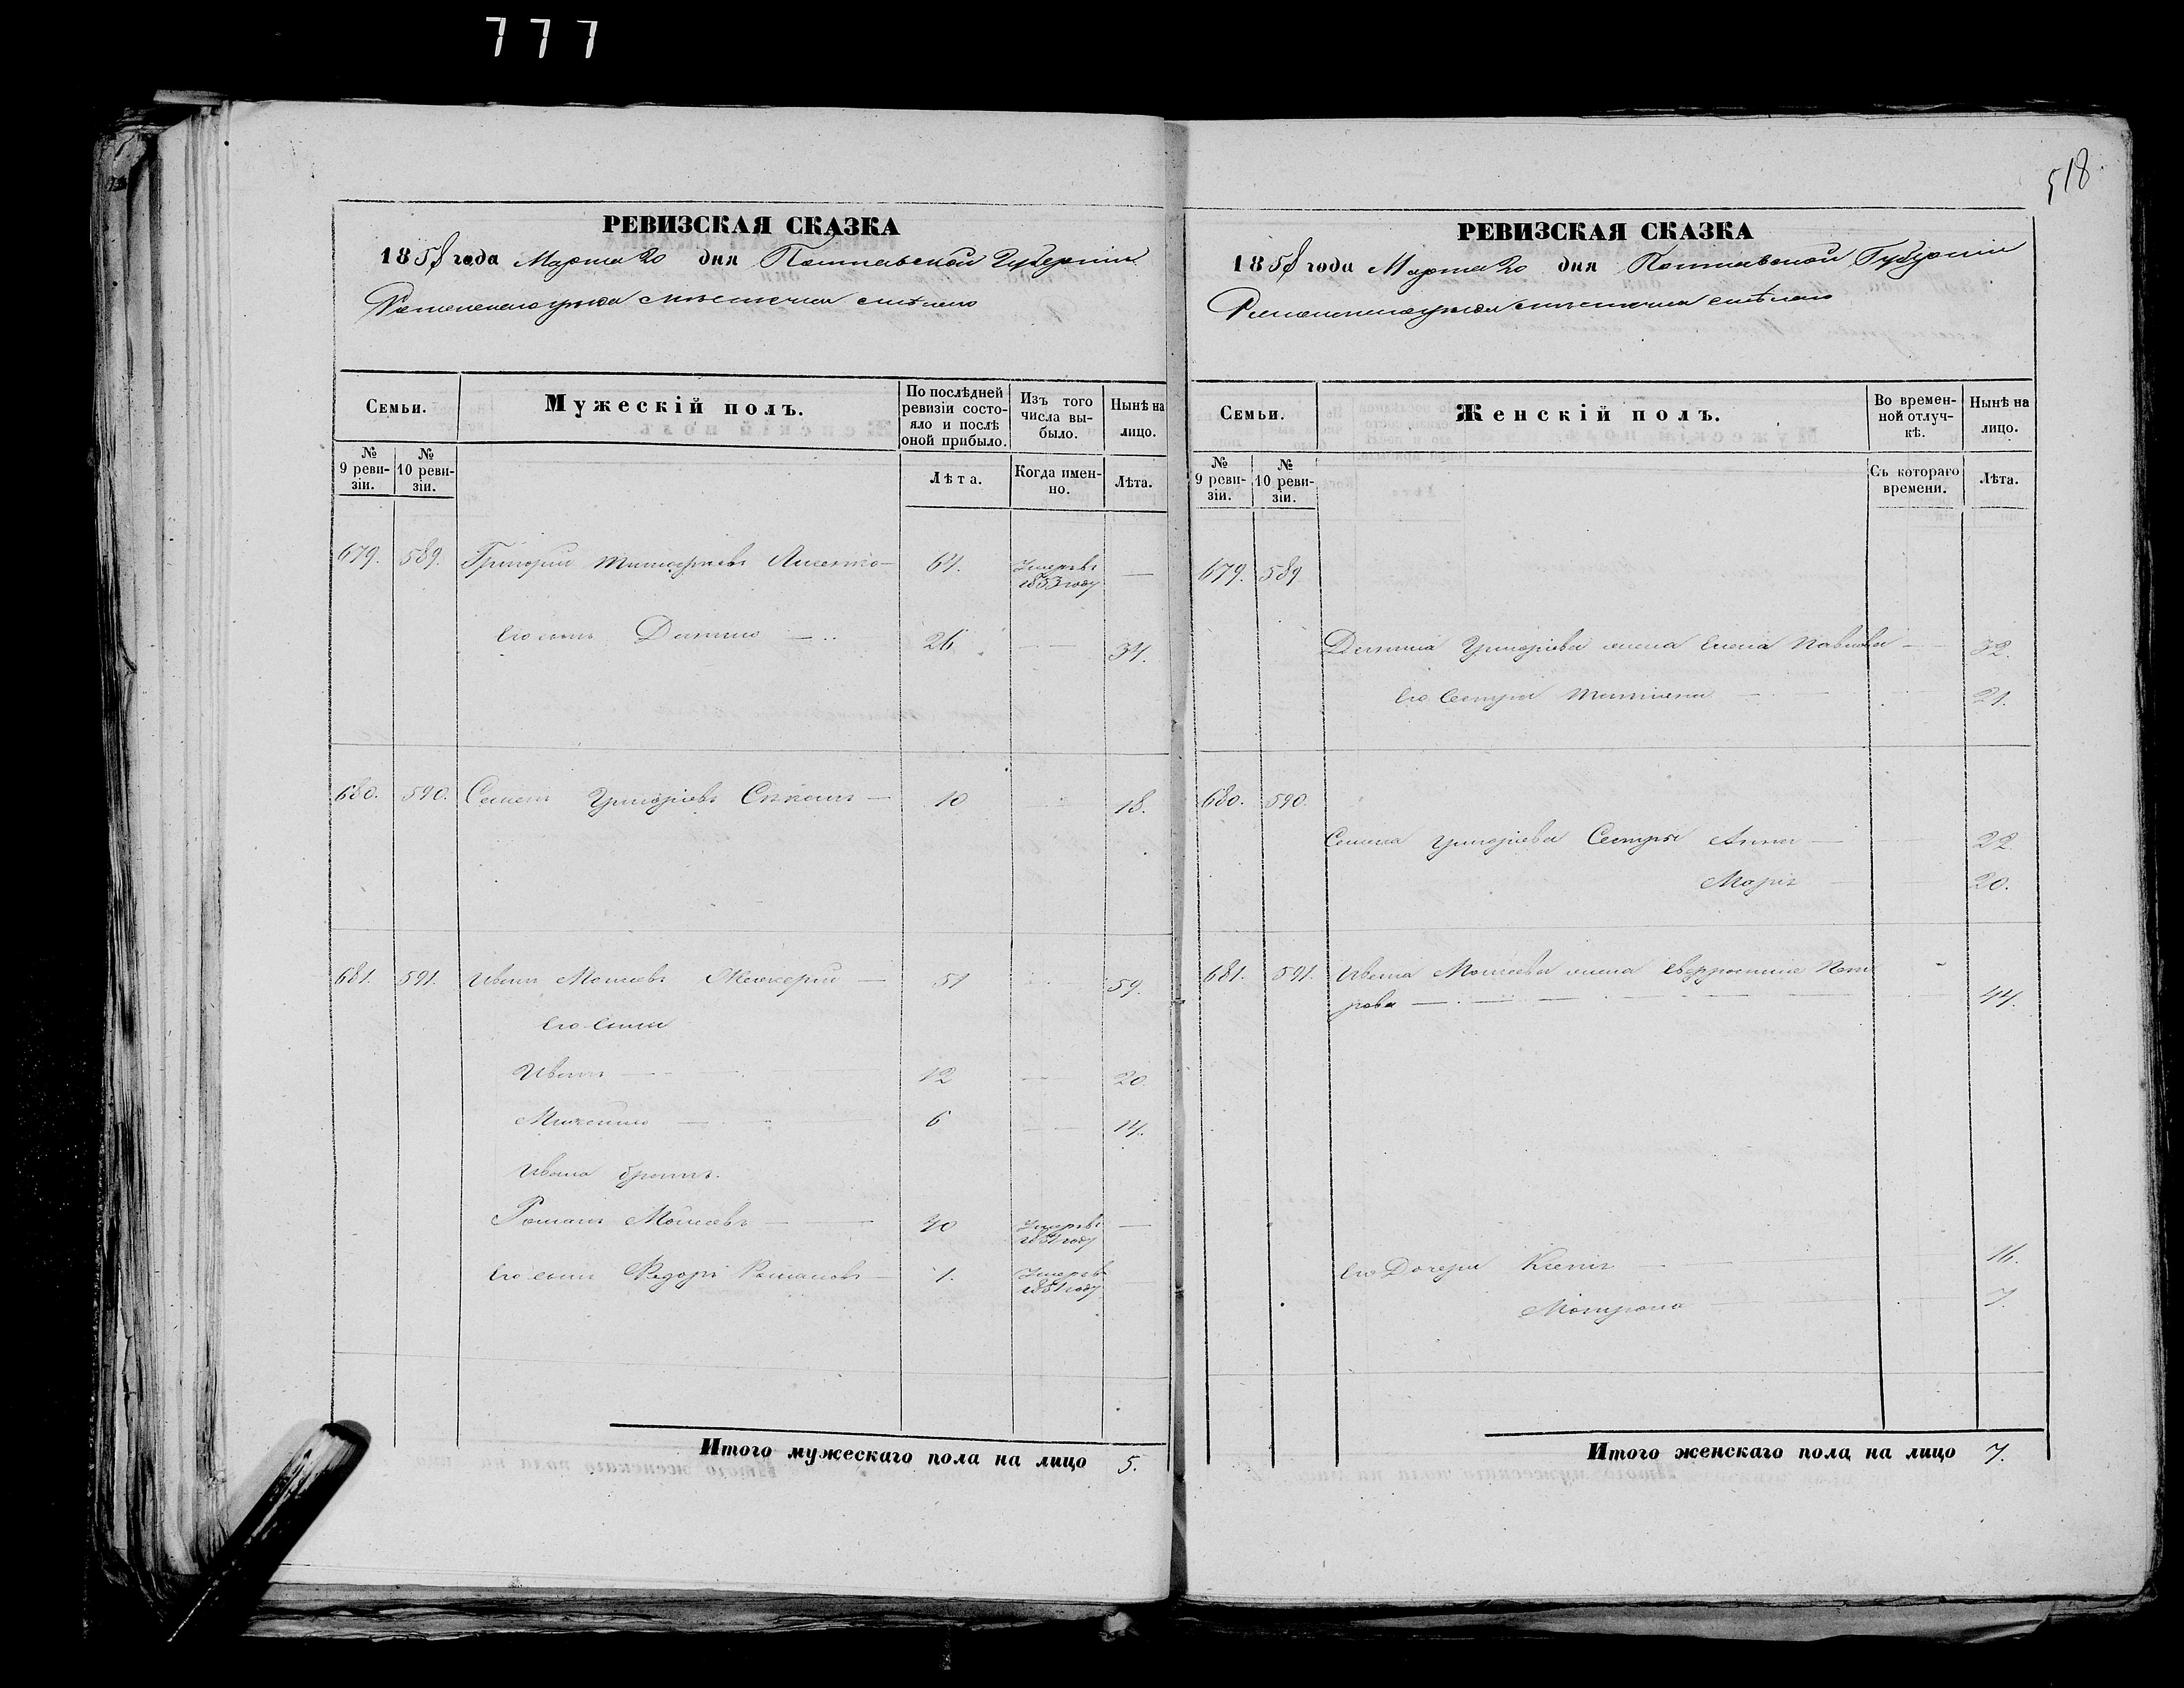 777
518
РЕВИЗСКАЯ СКАЗКА
1858 года Марта 20 дня Полтавской Губерніи
Роменского уезда местечка Смѣлого
Семьи.
Мужескій полъ.
По послѣдней ревизіи состояло и послѣ оной прибыло.
Изъ того числа выбыло.
Нынѣ на лицо.
№ 9 ревизіи.
№ 10 ревизіи.
Лѣта.
Когда именно.
Лѣта.
679. 589. Григорій Тимофѣевъ 64. Умеръ въ 1853 году —
Его сынъ Данило 26 — 34.
680. 590. Семенъ Григоріевъ 10 18.
681. 591. Иванъ Моисеевъ 51 59.
Его сыны
Иванъ — 12 — 20
Михайло — 6 — 14.
Ивана братъ.
Романъ Моисеевъ — 40 Умеръ въ 1851 году —
Его сынъ Федоръ Романовъ — 1. Умеръ въ 1851 году
Итого мужескаго пола на лицо 5.
РЕВИЗСКАЯ СКАЗКА
1858 года Марта 20 дня Полтавской Губерніи
Роменского уезда местечка Смѣлого
Семьи.
Женскій полъ.
Во временной отлучкѣ.
Нынѣ на лицо.
№ 9 ревизіи.
№ 10 ревизіи.
Съ котораго времени.
Лѣта.
679. 589
Данила Григоріева жена Елена Павлова — 32.
Его Сестра Татіана — 21.
680. 590.
Семена Григоріева Сестры Анна — 22
Марія — 20.
681. 591. Ивана Моисеева жена Евфросинія Пет
рова — 44.
Его Дочери Ксенія — 16.
Мотрона 7.
Итого женскаго пола на лицо 7.